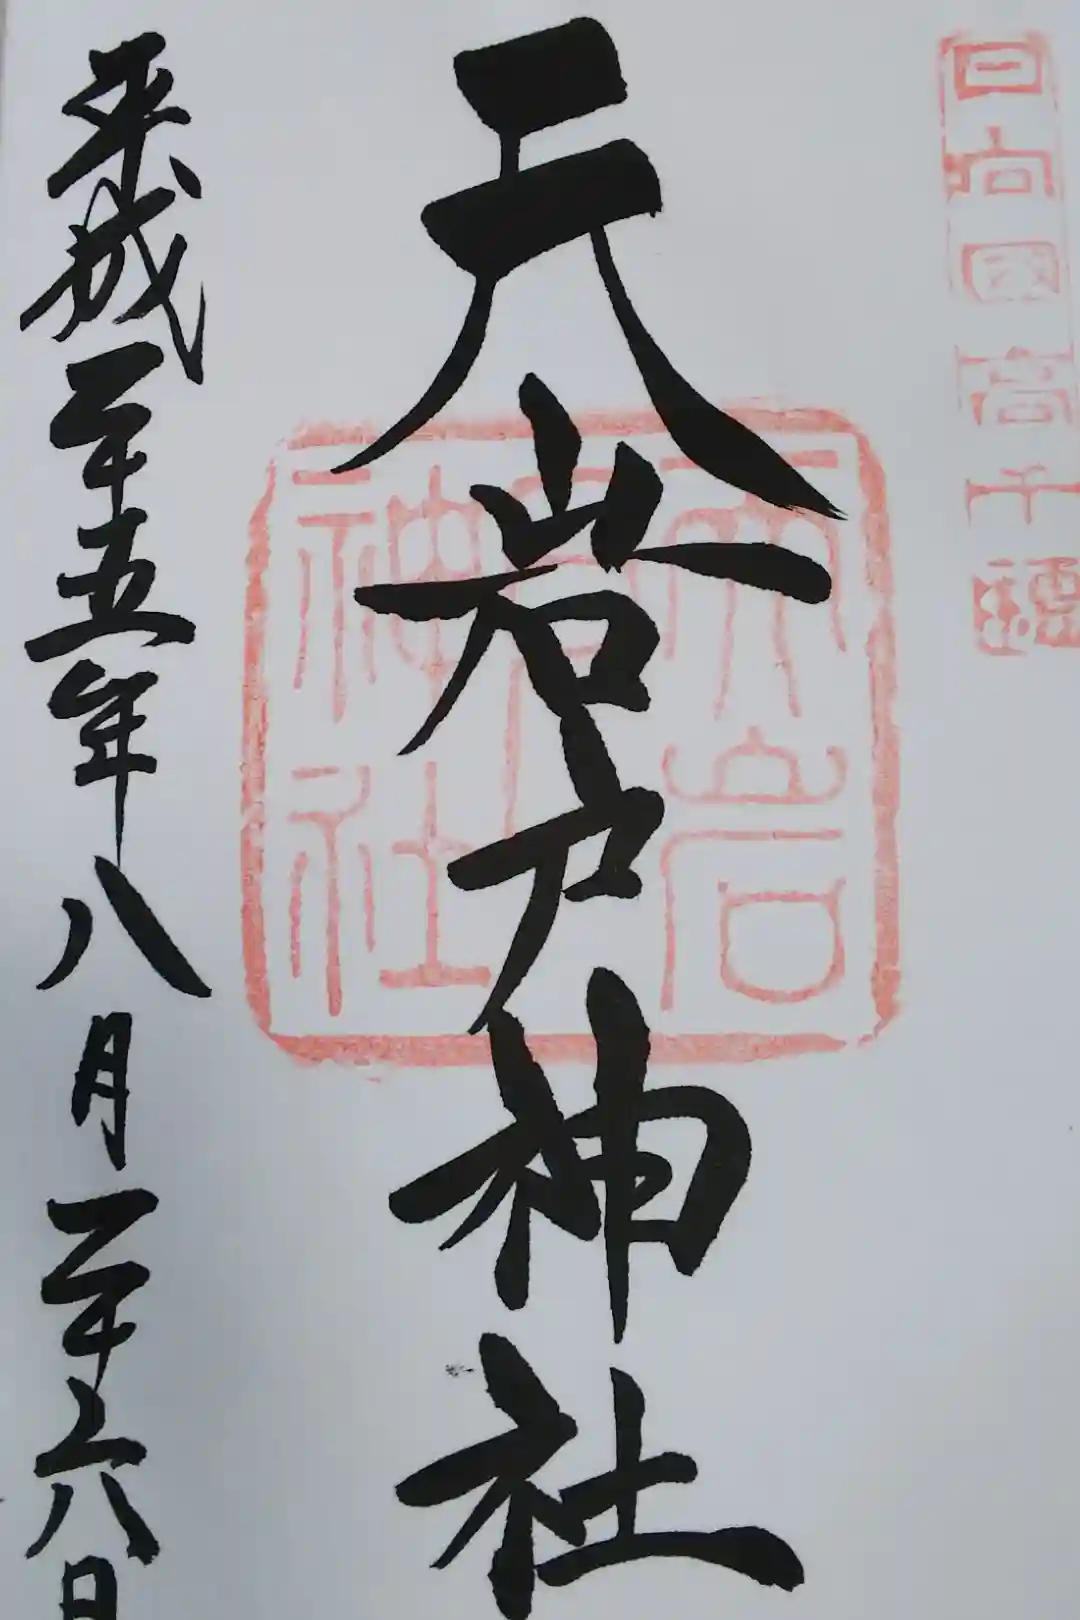 日向國高千穂
天岩戸神社
天岩戸
神社
平成二十五年八月二十六日